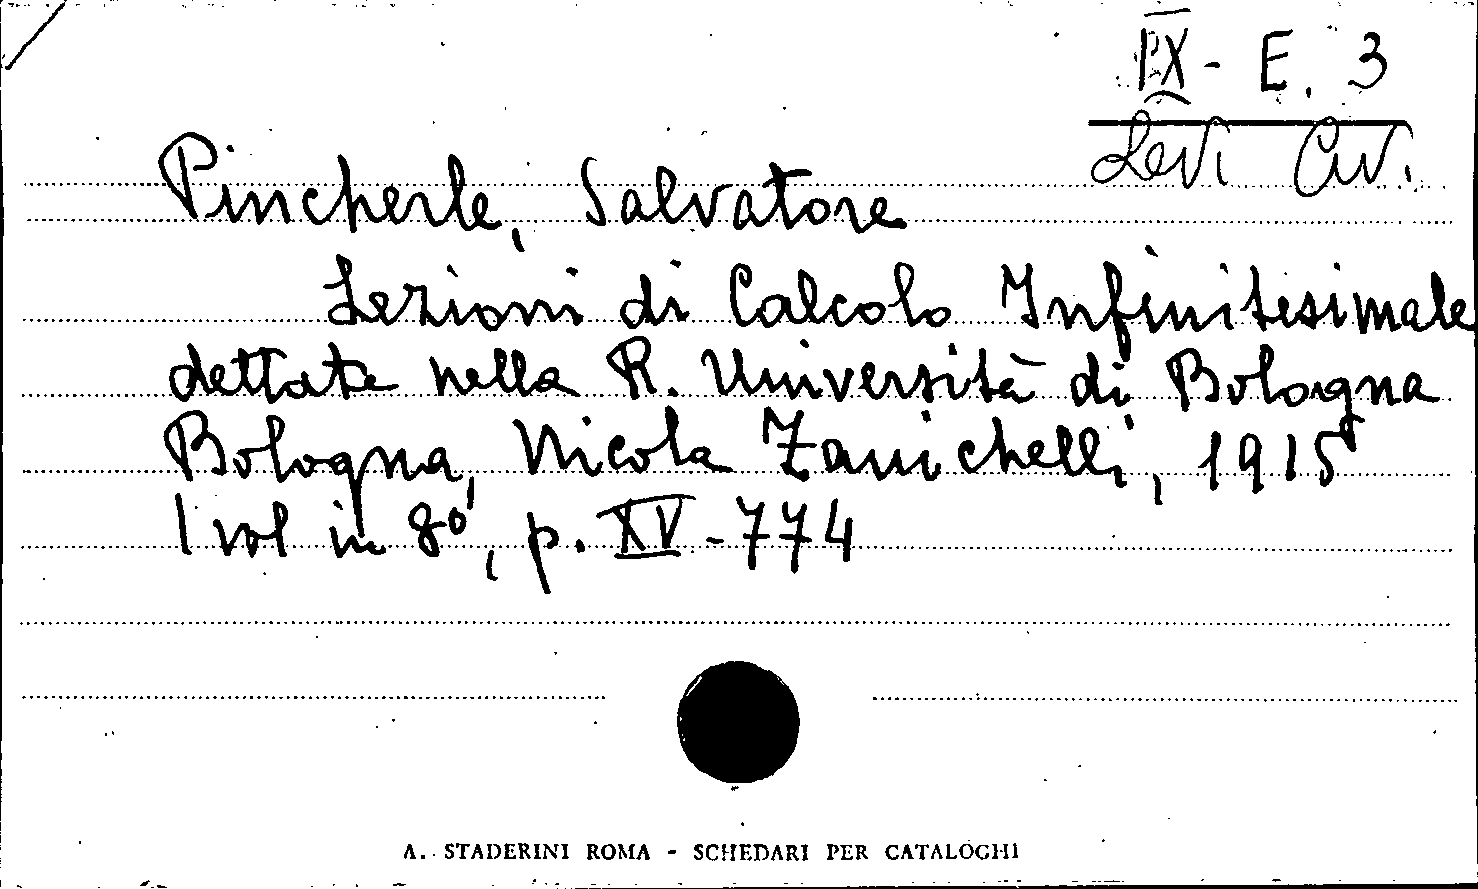 IX - E. 3
Levi Civ.
Pincherle, Salvatore
Lezioni di Calcolo Infinitesimale
dettate nella R. Università di Bologna
Bologna, Nicola Zanichelli, 1915
1 vol in 8°, p. XV - 774
A. STADERINI ROMA - SCHEDARI PER CATALOGHI